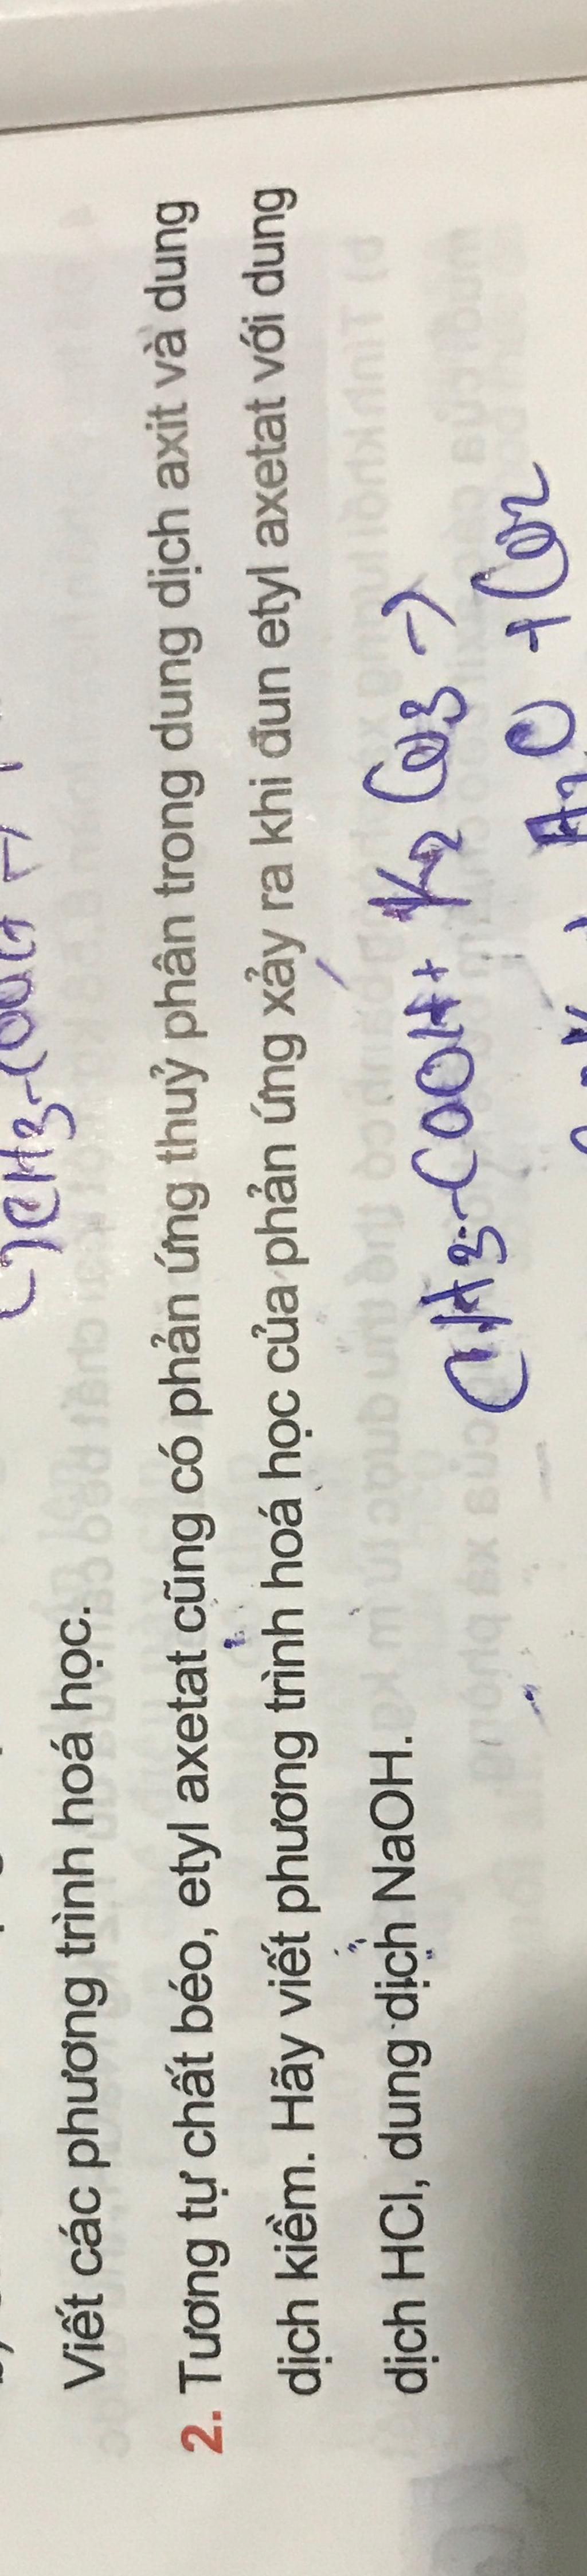 Viết các phương trình hoá học.
2. Tương tự chất béo, etyl axetat cũng có phản ứng thuỷ phân trong dung dịch axit và dung
dịch kiềm. Hãy viết phương trình hoá học của phản ứng xảy ra khi đun etyl axetat với dung
dịch HCl, dung dịch NaOH.
CH3-COOH + K2CO3 →
H2O + CO2